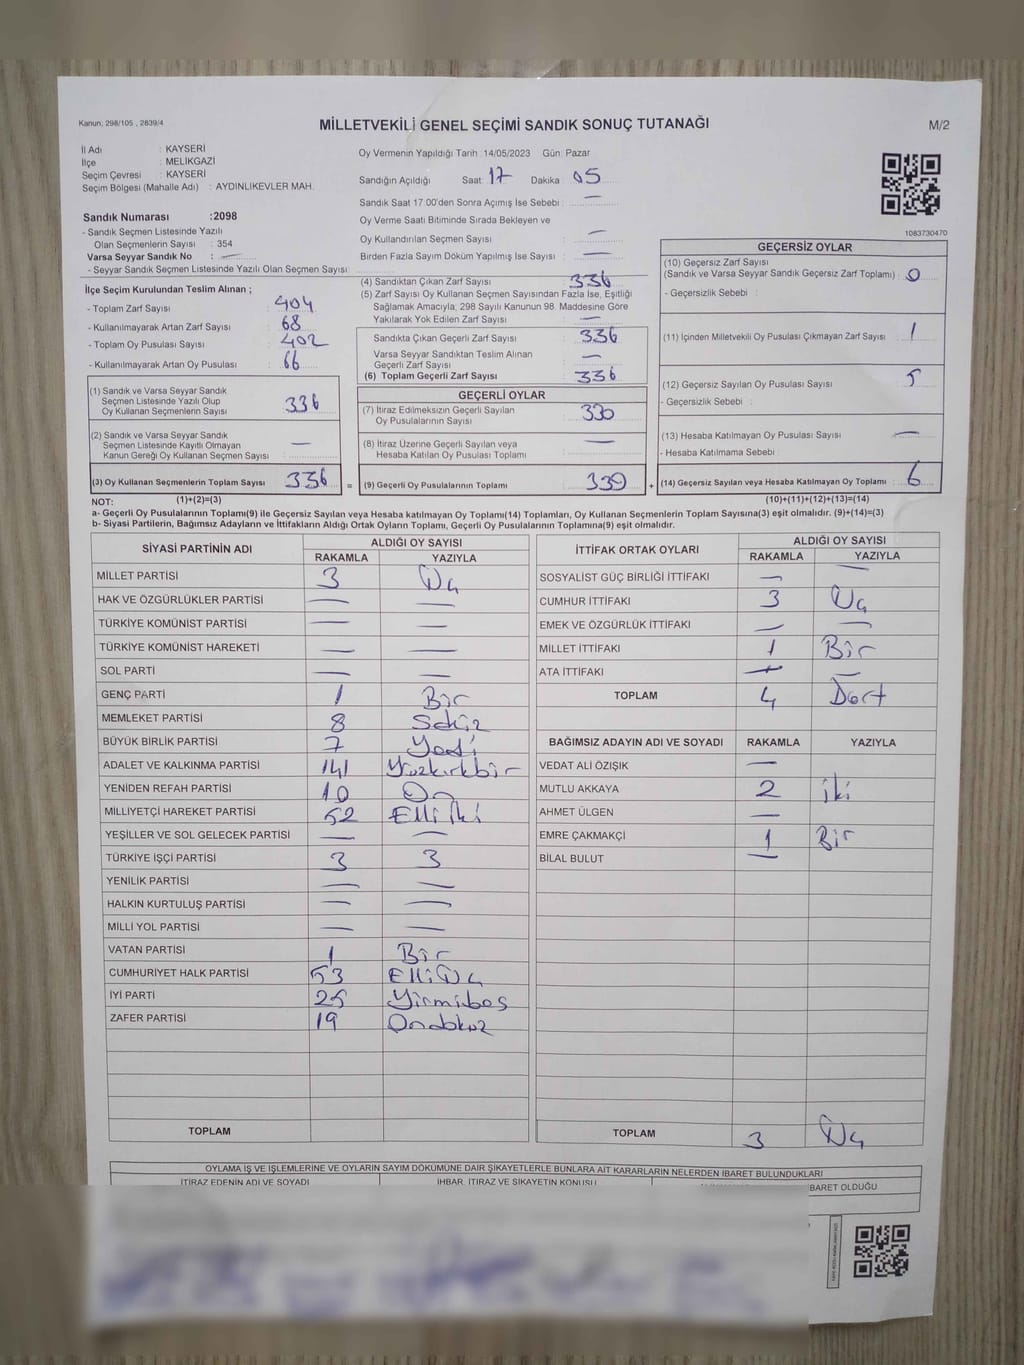 Kanun: 298/105 , 2839/4
MİLLETVEKİLİ GENEL SEÇİMİ SANDIK SONUÇ TUTANAĞI
M/2
İl Adı : KAYSERİ
İlçe : MELİKGAZİ
Seçim Çevresi : KAYSERİ
Seçim Bölgesi (Mahalle Adı) : AYDINLIKEVLER MAH.
Sandık Numarası :2098
- Sandık Seçmen Listesinde Yazılı
Olan Seçmenlerin Sayısı : 354
Varsa Seyyar Sandık No : —
- Seyyar Sandık Seçmen Listesinde Yazılı Olan Seçmen Sayısı:
İlçe Seçim Kurulundan Teslim Alınan ;
- Toplam Zarf Sayısı : 404
- Kullanılmayarak Artan Zarf Sayısı : 68
- Toplam Oy Pusulası Sayısı : 402
- Kullanılmayarak Artan Oy Pusulası : 66
(1) Sandık ve Varsa Seyyar Sandık
Seçmen Listesinde Yazılı Olup
Oy Kullanan Seçmenlerin Sayısı : 336
(2) Sandık ve Varsa Seyyar Sandık
Seçmen Listesinde Kayıtlı Olmayan
Kanun Gereği Oy Kullanan Seçmen Sayısı : —
(3) Oy Kullanan Seçmenlerin Toplam Sayısı : 336 =
Oy Vermenin Yapıldığı Tarih :14/05/2023 Gün: Pazar
Sandığın Açıldığı Saat: 17 Dakika : 05
Sandık Saat 17:00'den Sonra Açımış İse Sebebi : —
Oy Verme Saati Bitiminde Sırada Bekleyen ve
Oy Kullandırılan Seçmen Sayısı : —
Birden Fazla Sayım Döküm Yapılmış İse Sayısı : —
(4) Sandıktan Çıkan Zarf Sayısı : 336
(5) Zarf Sayısı Oy Kullanan Seçmen Sayısından Fazla İse, Eşitliği
Sağlamak Amacıyla; 298 Sayılı Kanunun 98. Maddesine Göre
Yakılarak Yok Edilen Zarf Sayısı : —
Sandıkta Çıkan Geçerli Zarf Sayısı : 336
Varsa Seyyar Sandıktan Teslim Alınan
Geçerli Zarf Sayısı : —
(6) Toplam Geçerli Zarf Sayısı : 336
GEÇERLİ OYLAR
(7) İtiraz Edilmeksizin Geçerli Sayılan
Oy Pusulalarının Sayısı : 330
(8) İtiraz Üzerine Geçerli Sayılan veya
Hesaba Katılan Oy Pusulası Toplamı : —
(9) Geçerli Oy Pusulalarının Toplamı : 330 +
1083730470
GEÇERSİZ OYLAR
(10) Geçersiz Zarf Sayısı
(Sandık ve Varsa Seyyar Sandık Geçersiz Zarf Toplamı) : 0
- Geçersizlik Sebebi :
(11) İçinden Milletvekili Oy Pusulası Çıkmayan Zarf Sayısı : 1
(12) Geçersiz Sayılan Oy Pusulası Sayısı : 5
- Geçersizlik Sebebi :
(13) Hesaba Katılmayan Oy Pusulası Sayısı : —
- Hesaba Katılmama Sebebi :
(14) Geçersiz Sayılan veya Hesaba Katılmayan Oy Toplamı : 6
NOT: (1)+(2)=(3) (10)+(11)+(12)+(13)=(14)
a- Geçerli Oy Pusulalarının Toplamı(9) ile Geçersiz Sayılan veya Hesaba katılmayan Oy Toplamı(14) Toplamları, Oy Kullanan Seçmenlerin Toplam Sayısına(3) eşit olmalıdır. (9)+(14)=(3)
b- Siyasi Partilerin, Bağımsız Adayların ve İttifakların Aldığı Ortak Oyların Toplamı, Geçerli Oy Pusulalarının Toplamına(9) eşit olmalıdır.
SİYASİ PARTİNİN ADI ALDIĞI OY SAYISI
RAKAMLA YAZIYLA
MİLLET PARTİSİ 3 Üç
HAK VE ÖZGÜRLÜKLER PARTİSİ — —
TÜRKİYE KOMÜNİST PARTİSİ — —
TÜRKİYE KOMÜNİST HAREKETİ — —
SOL PARTİ — —
GENÇ PARTİ 1 Bir
MEMLEKET PARTİSİ 8 Sekiz
BÜYÜK BİRLİK PARTİSİ 7 Yedi
ADALET VE KALKINMA PARTİSİ 141 Yüzkırkbir
YENİDEN REFAH PARTİSİ 10 On
MİLLİYETÇİ HAREKET PARTİSİ 52 Elli İki
YEŞİLLER VE SOL GELECEK PARTİSİ — —
TÜRKİYE İŞÇİ PARTİSİ 3 3
YENİLİK PARTİSİ — —
HALKIN KURTULUŞ PARTİSİ — —
MİLLİ YOL PARTİSİ — —
VATAN PARTİSİ 1 Bir
CUMHURİYET HALK PARTİSİ 53 Elli Üç
İYİ PARTİ 25 Yirmibeş
ZAFER PARTİSİ 19 Ondokuz
TOPLAM
İTTİFAK ORTAK OYLARI ALDIĞI OY SAYISI
RAKAMLA YAZIYLA
SOSYALİST GÜÇ BİRLİĞİ İTTİFAKI — —
CUMHUR İTTİFAKI 3 Üç
EMEK VE ÖZGÜRLÜK İTTİFAKI — —
MİLLET İTTİFAKI 1 Bir
ATA İTTİFAKI — —
TOPLAM 4 Dört
BAĞIMSIZ ADAYIN ADI VE SOYADI RAKAMLA YAZIYLA
VEDAT ALİ ÖZIŞIK —
MUTLU AKKAYA 2 İki
AHMET ÜLGEN —
EMRE ÇAKMAKÇİ 1 Bir
BİLAL BULUT —
TOPLAM 3 Üç
OYLAMA İŞ VE İŞLEMLERİNE VE OYLARIN SAYIM DÖKÜMÜNE DAİR ŞİKAYETLERLE BUNLARA AİT KARARLARIN NELERDEN İBARET BULUNDUKLARI
İTİRAZ EDENİN ADI VE SOYADI İHBAR, İTİRAZ VE ŞİKAYETİN KONUSU BARET OLDUĞU